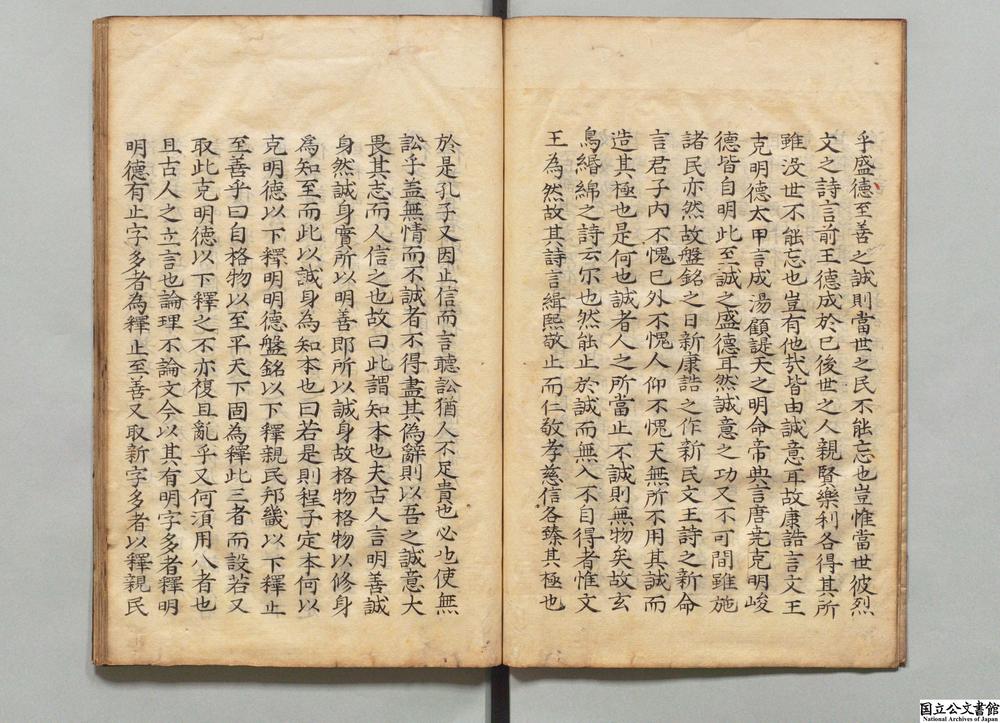 乎盛德至善之誠則當世之民不能忘也豈惟當世彼烈
文之詩言前王德成於已後世之人親賢樂利各得其所
雖没世不能忘也豈有他㢤皆由誠意耳故康誥言文王
克明德太甲言成湯顧諟天之明命帝典言唐堯克明峻
德皆自明此至誠之盛德耳然誠意之功又不可間雖施
諸民亦然故盤銘之日新康誥之作新民文王詩之新命
言君子内不愧已外不愧人仰不愧天無所不用其誠而
造其極也是何也誠者人之所當止不誠則無物矣故玄
鳥緡綿之詩云尓也然能止於誠而無入不自得者惟文
王為然故其詩言緝熙敬止而仁敬孝慈信各臻其極也
於是孔子又因止信而言聽訟猶人不足貴也必也使無
訟乎盖無情而不誠者不得盡其偽辭則以吾之誠意大
畏其志而人信之也故曰此謂知本也夫古人言明善誠
身然誠身實所以明善即所以誠身故格物格物以修身
爲知至而此以誠身為知本也曰若是則程子定本何以
克明德以下釋明明德盤銘以下釋親民邦畿以下釋止
至善乎曰自格物以至平天下固為釋此三者而設若又
取此克明德以下釋之不亦復且亂乎又何須用八者也
且古人之立言也論理不論文今以其有明字多者釋明
明德有止字多者為釋止至善又取新字多者以釋親民
国立公文書館
National Archives of Japan